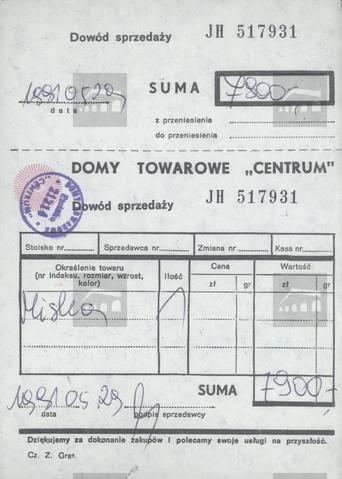 Dowód sprzedaży JH 517931
1991.05.29 SUMA 7900,-
data
z przeniesienia
do przeniesienia
DOMY TOWAROWE „CENTRUM"
Dowód sprzedaży JH 517931
Stoisko nr Sprzedawca nr Zmiana nr Kasa nr
Określenie towaru Ilość Cena Wartość
(nr indeksu, rozmiar, wzrost, zł gr zł gr
kolor)
Miska 1
1991.05.29 SUMA 7900,-
data podpis sprzedawcy
Dziękujemy za dokonanie zakupów i polecamy swoje usługi na przyszłość.
Cz. Z. Graf.